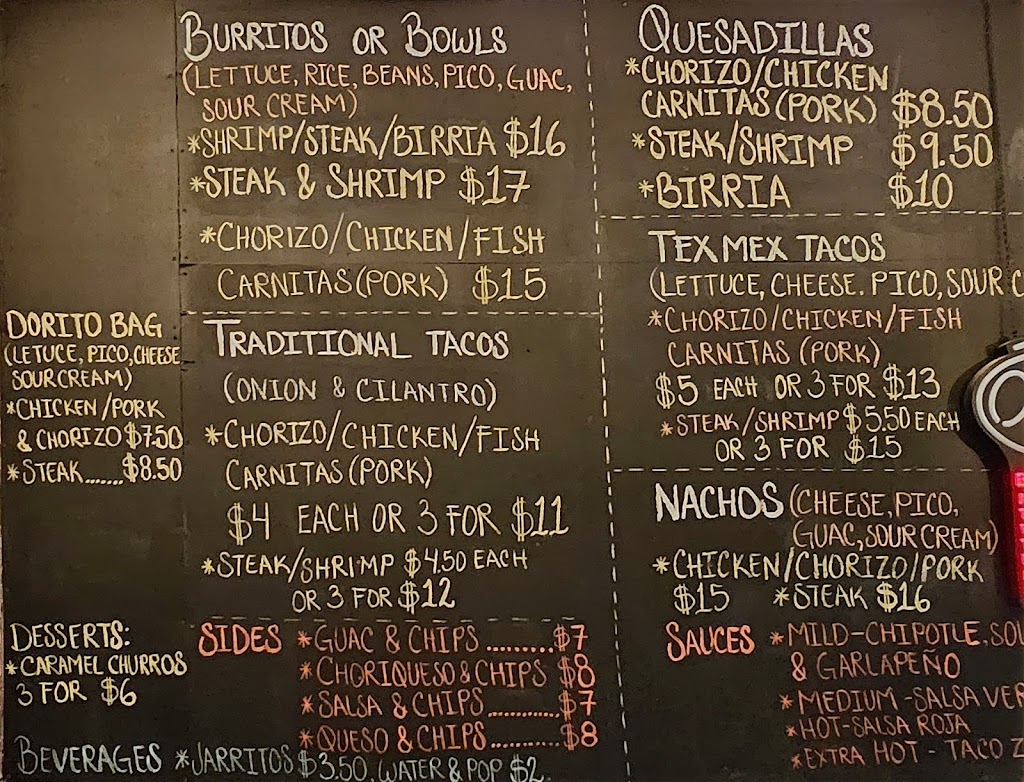 BURRITOS OR BOWLS
(LETTUCE, RICE, BEANS, PICO, GUAC,
SOUR CREAM)
*SHRIMP/STEAK/BIRRIA $16
*STEAK & SHRIMP $17
*CHORIZO/CHICKEN/FISH
CARNITAS (PORK) $15
QUESADILLAS
*CHORIZO/CHICKEN
CARNITAS (PORK) $8.50
*STEAK/SHRIMP $9.50
*BIRRIA $10
TEX MEX TACOS
(LETTUCE, CHEESE. PICO, SOUR C
*CHORIZO/CHICKEN/FISH
CARNITAS (PORK)
$5 EACH OR 3 FOR $13
*STEAK/SHRIMP $5.50 EACH
OR 3 FOR $15
DORITO BAG
(LETUCE, PICO, CHEESE
SOUR CREAM)
*CHICKEN/PORK
& CHORIZO $7.50
*STEAK....... $8.50
TRADITIONAL TACOS
(ONION & CILANTRO)
*CHORIZO/CHICKEN/FISH
CARNITAS (PORK)
$4 EACH OR 3 FOR $11
*STEAK/SHRIMP $4.50 EACH
OR 3 FOR $12
NACHOS (CHEESE, PICO,
GUAC, SOUR CREAM)
*CHICKEN/CHORIZO/PORK
$15 *STEAK $16
DESSERTS:
*CARAMEL CHURROS
3 FOR $6
SIDES *GUAC & CHIPS ......... $7
*CHORIQUESO & CHIPS $8
*SALSA & CHIPS ............ $7
*QUESO & CHIPS ........... $8
SAUCES *MILD-CHIPOTLE, SOU
& GARLAPEÑO
*MEDIUM-SALSA VER
*HOT-SALSA ROJA
*EXTRA HOT - TACO Z
BEVERAGES *JARRITOS $3.50, WATER & POP $2